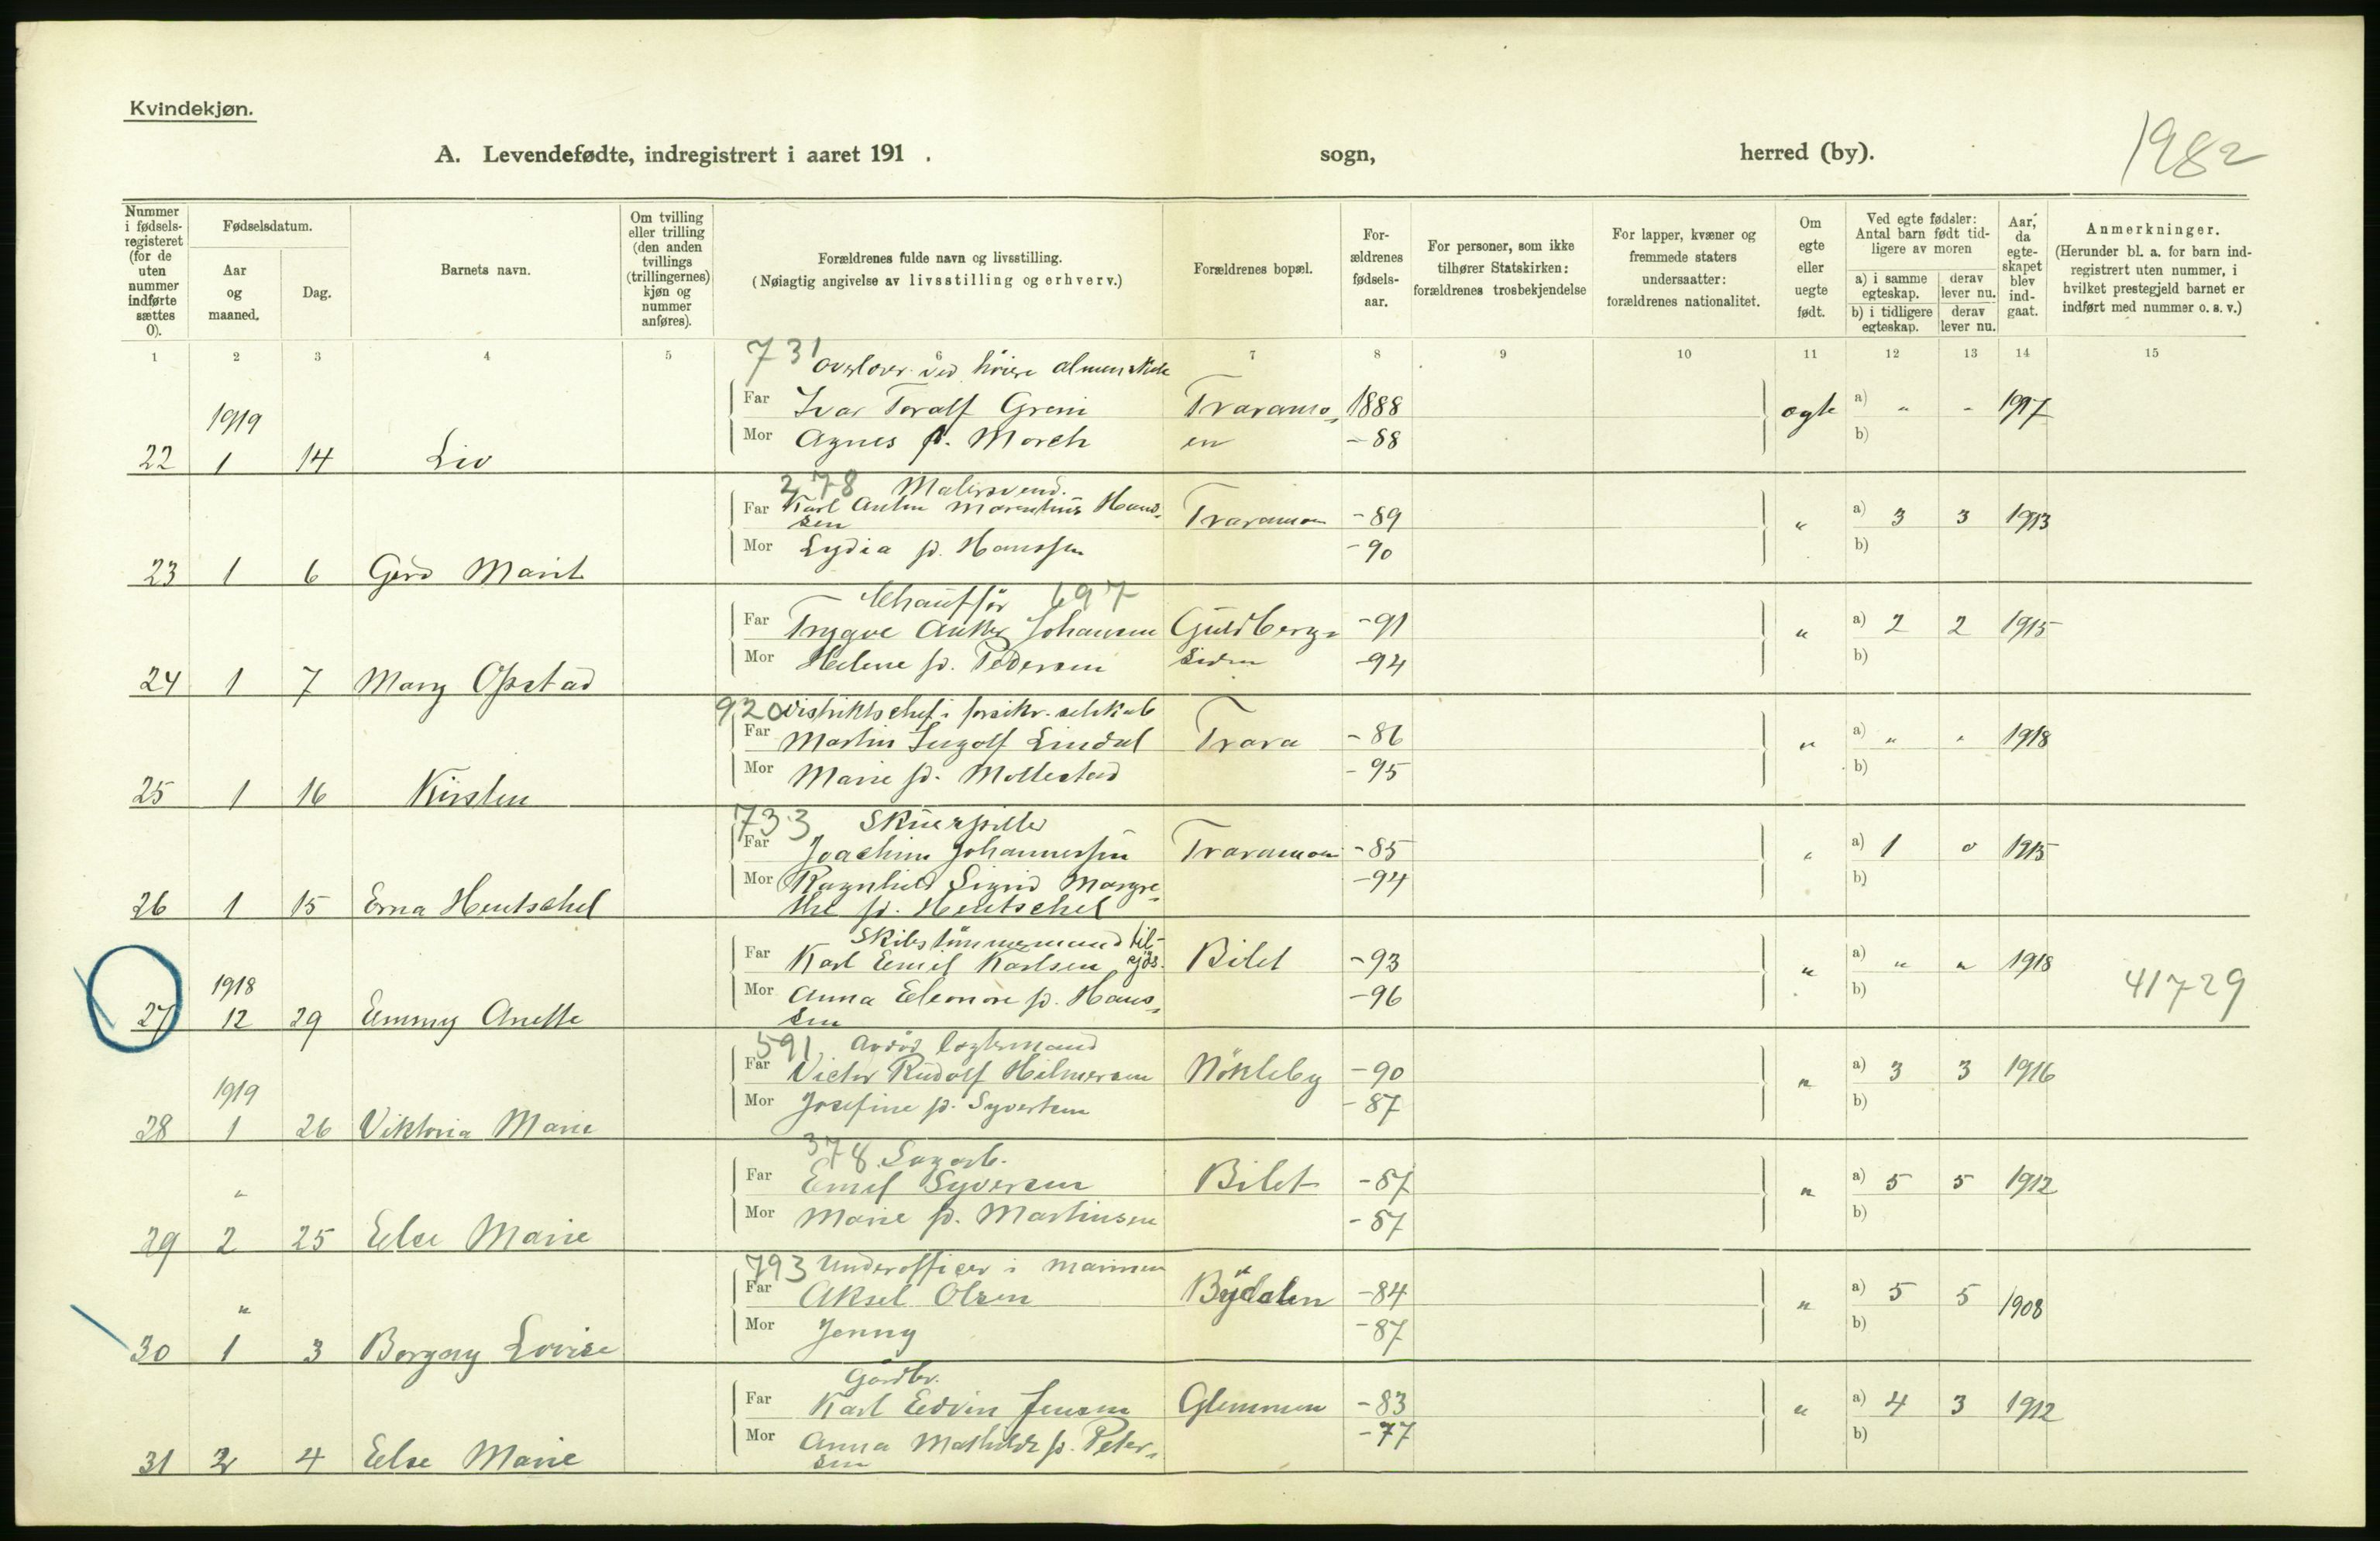 Kvindekjøn.
A. Levendefødte, indregistrert i aaret 191 . sogn, herred (by).
1982
Nummer i fødsels-registeret (for de uten nummer indførte sættes 0).
Fødselsdatum.
Aar og maaned.
Dag.
Barnets navn.
Om tvilling eller trilling (den anden tvillings (trillingernes) kjøn og nummer anføres).
Forældrenes fulde navn og livsstilling.
(Nøiagtig angivelse av livsstilling og erhverv.)
Forældrenes bopæl.
For-ældrenes fødsels-aar.
For personer, som ikke tilhører Statskirken: forældrenes trosbekjendelse
For lapper, kvæner og fremmede staters undersaatter: forældrenes nationalitet.
Om egte eller uegte født.
Ved egte fødsler: Antal barn født tid-ligere av moren
a) i samme egteskap. derav lever nu.
b) i tidligere egteskap. derav lever nu.
Aar, da egte-skapet blev ind-gaat.
Anmerkninger.
(Herunder bl. a. for barn ind-registrert uten nummer, i hvilket prestegjeld barnet er indført med nummer o. s. v.)
1 2 3 4 5 6 7 8 9 10 11 12 13 14 15
731 ved høiere almenskole
Far Ivar Toralf Greni Traramo- 1888 egte a) " " 1917
1919
Mor Agnes f. Morch en -88 b)
22 1 14 Liv
278 Malersvend.
Far Karl Anton Marentius Hans- Traramoen -89 " a) 3 3 1913
sen
Mor Lydia f. Hanssen -90 b)
23 1 6 Gerd Marit
Chauffør 697
Far Trygve Anker Johansen Guldbergs- -91 " a) 2 2 1915
Mor Helene f. Pedersen siden -94 b)
24 1 7 Mary Opstad
920 Distriktschef i forsikr. selskab
Far Martin Ingolf Lindal Trara -86 " a) " " 1918
Mor Marie f. Mollestad -95 b)
25 1 16 Kirsten
733 Skuespiller
Far Joachim Johannessen Traramoen -85 " a) 1 0 1915
Mor Ragnhild Sigrid Margre- -94 b)
the f. Hentschel
26 1 15 Erna Hentschel
Skibstømmermand til-
Far Karl Emil Karlsen sjøs. Bilet -93 " a) " " 1918
1918
Mor Anna Eleonore f. Hans- -96 b) 41729
sen
27 12 29 Emmy Anette
591 Avdød
Far Victor Rudolf Hilmersen Nøkleby -90 " a) 3 3 1916
1919
Mor Josefine f. Syvertsen -87 b)
28 1 26 Viktoria Marie
378 Sagarb.
Far Emil Syversen Bilet -87 " a) 5 5 1912
"
Mor Marie f. Martinsen -87 b)
29 2 25 Else Marie
793 Underofficer i marinen
Far Aksel Olsen Bydalen -84 " a) 5 5 1908
"
Mor Jenny -87 b)
30 1 3 Borgny Lovise
Gårdbr.
Far Karl Edvin Jensen Glemmen -83 " a) 4 3 1912
Mor Anna Mathilde f. Peter- -77 b)
sen
31 2 4 Else Marie